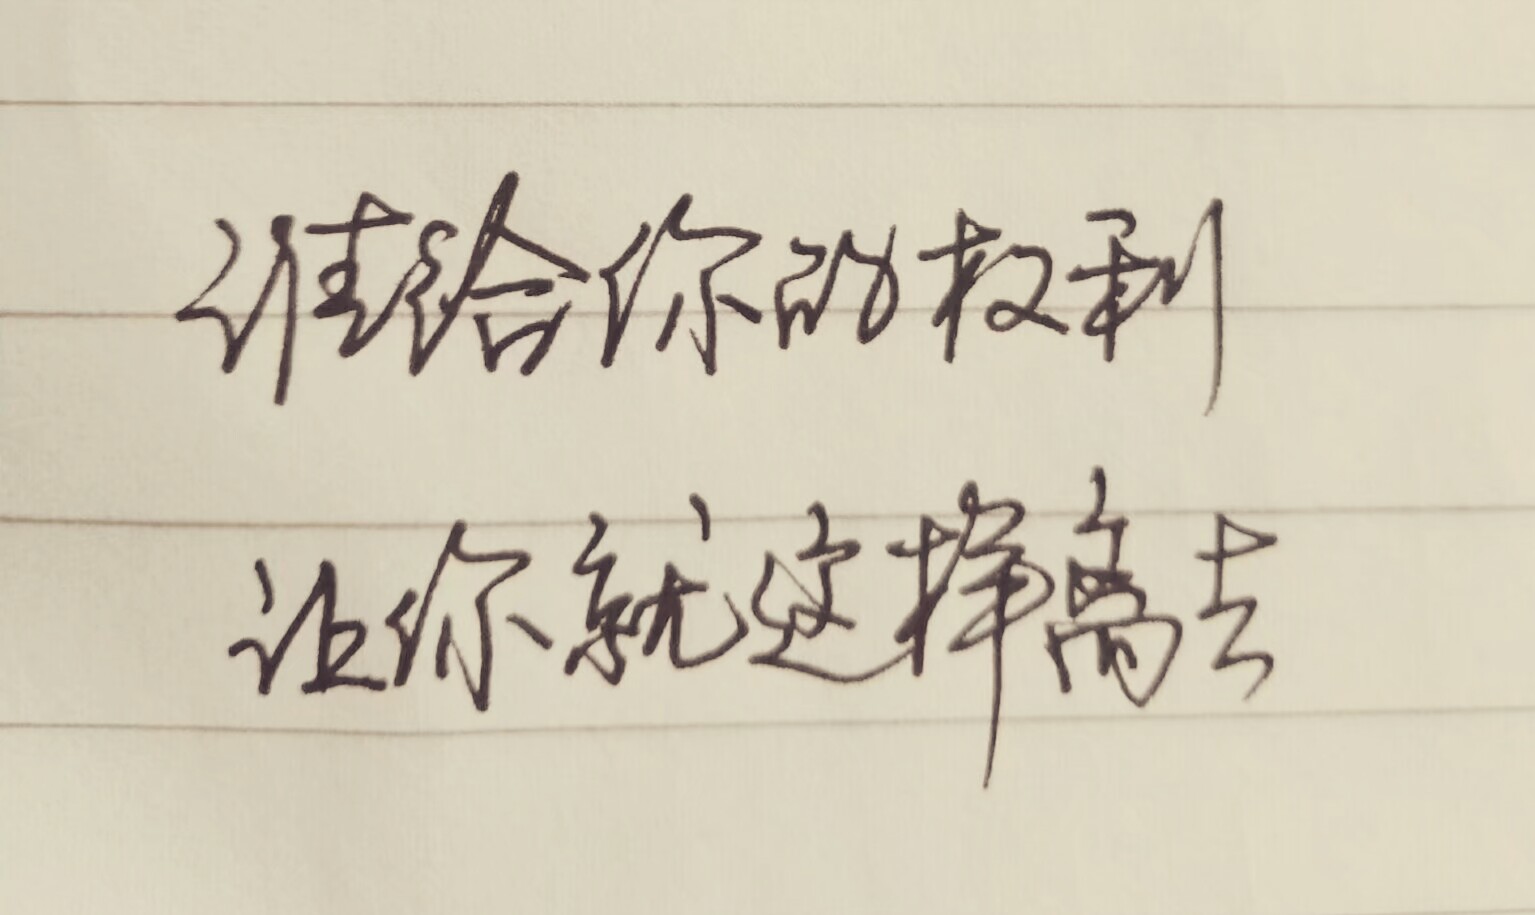 谁给你的权利
让你就这样离去